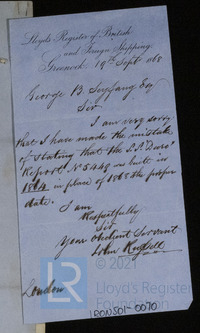 Lloyd's Register of British
and Foreign Shipping.
Greenock, 19th Sept 1868
George B. Seyfang Esq
Sir
I am very sorry
that I have made the mistake
of stating that the S.S.
Report No 5449 was built in
1864 in place of 1868 the proper
date.
I am
Respectfully
Sir
Your Obedient Servant
John
London
LR
© 2021
Lloyd's Register
Foundation
IRON501-0070